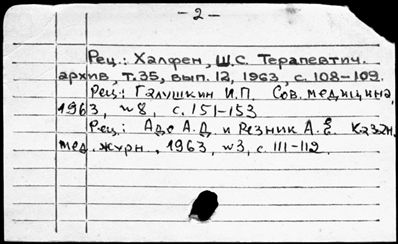 – 2 –
Рец.: Халфен, Ш.С. Терапевтич.
архив, т.35, вып. 12, 1963, с. 108–109.
Рец.: Галушкин И.П. Сов. медицина,
1963, №8, с. 151–153
Рец.: Адо А.Д. и Резник А.Е. Казан.
мед. журн., 1963, №3, с. 111–112.